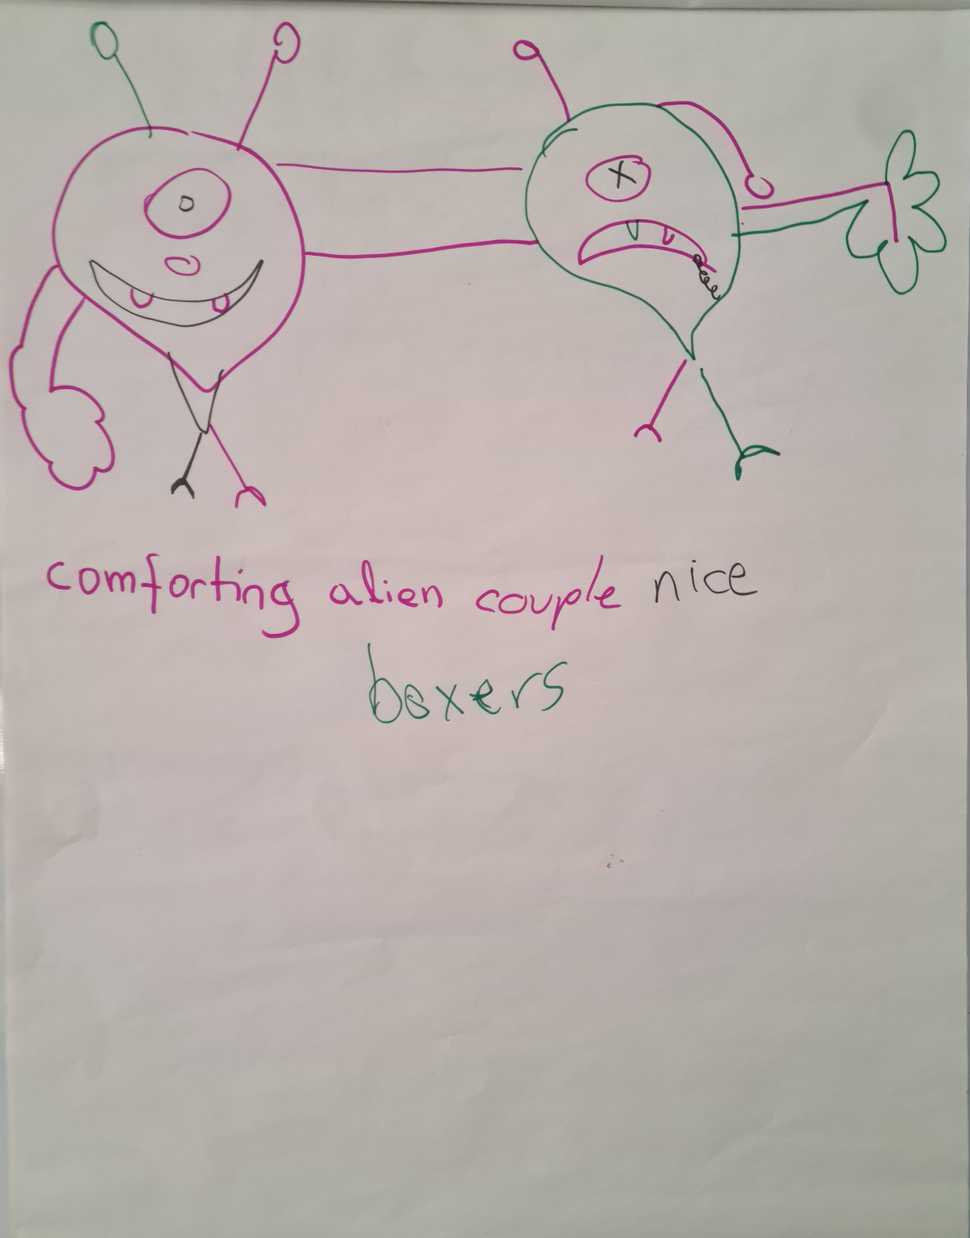 comforting alien couple nice
boxers